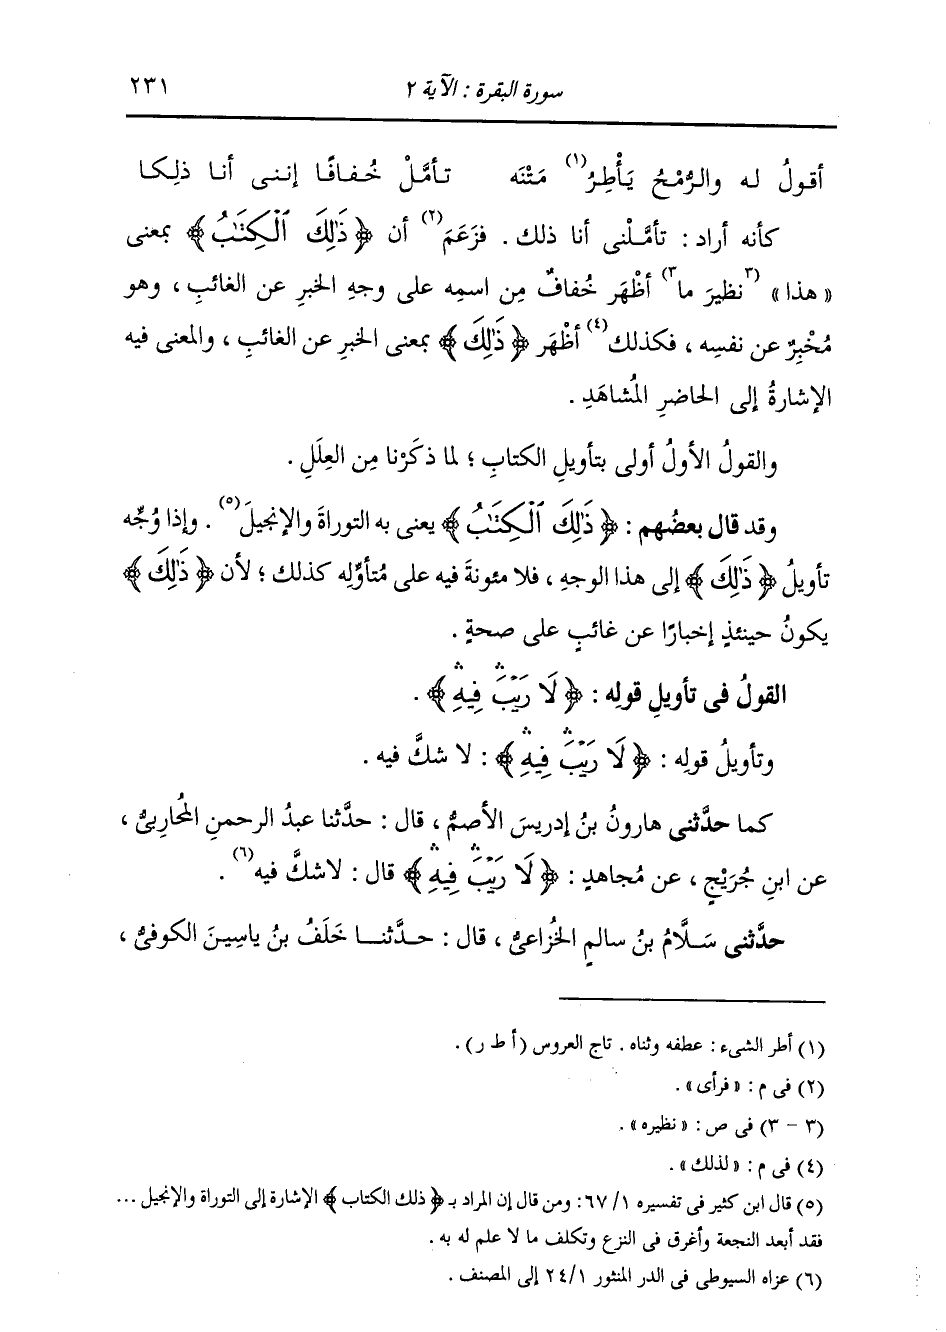 سورة البقرة : الآية ٢ ٢٣١
أقولُ له والرُّمْحُ يَأْطِرُ(١) مَتْنَه تأمَّلْ خُفافًا إننى أنا ذلِكا
كأنه أراد : تأمَّلْنى أنا ذلك . فزَعَم(٢) أن ﴿ ذَٰلِكَ ٱلْكِتَٰبُ ﴾ بمعنى
« هذا » (٣نظيرَ ما٣) أظْهَر خُفافٌ مِن اسمِه على وجهِ الخبرِ عن الغائبِ ، وهو
مُخْبِرٌ عن نفسِه ، فكذلك(٤) أظْهَر ﴿ ذَٰلِكَ ﴾ بمعنى الخبرِ عن الغائبِ ، والمعنى فيه
الإشارةُ إلى الحاضرِ المُشاهَدِ .
والقولُ الأولُ أولى بتأويلِ الكتابِ ؛ لما ذكَرْنا مِن العِلَلِ .
وقد قال بعضُهم : ﴿ ذَٰلِكَ ٱلْكِتَٰبُ ﴾ يعنى به التوراةَ والإنجيلَ(٥) . وإذا وُجِّه
تأويلُ ﴿ ذَٰلِكَ ﴾ إلى هذا الوجهِ ، فلا مئونةَ فيه على مُتأوِّلِه كذلك ؛ لأن ﴿ ذَٰلِكَ ﴾
يكونُ حينئذٍ إخبارًا عن غائبٍ على صحةٍ .
القولُ فى تأويلِ قولِه : ﴿ لَا رَيْبَ ۛ فِيهِ ۛ ﴾ .
وتأويلُ قولِه : ﴿ لَا رَيْبَ ۛ فِيهِ ۛ ﴾ : لا شكَّ فيه .
كما حدَّثنى هارونُ بنُ إدريسَ الأصمُّ ، قال : حدَّثنا عبدُ الرحمنِ المُحاربىُّ ،
عن ابنِ جُرَيْجٍ ، عن مُجاهدٍ : ﴿ لَا رَيْبَ ۛ فِيهِ ۛ ﴾ قال : لا شكَّ فيه(٦) .
حدَّثنى سَلَّامُ بنُ سالمٍ الخُزاعىُّ ، قال : حدَّثنا خَلَفُ بنُ ياسِينَ الكوفىُّ ،
(١) أطر الشىء : عطفه وثناه . تاج العروس (أ ط ر) .
(٢) فى م : « فرأى » .
(٣ - ٣) فى ص : « نظيره » .
(٤) فى م : « لذلك » .
(٥) قال ابن كثير فى تفسيره ١/ ٦٧: ومن قال إن المراد بـ ﴿ ذلك الكتاب ﴾ الإشارة إلى التوراة والإنجيل ...
فقد أبعد النجعة وأغرق فى النزع وتكلف ما لا علم له به .
(٦) عزاه السيوطى فى الدر المنثور ١/ ٢٤ إلى المصنف .